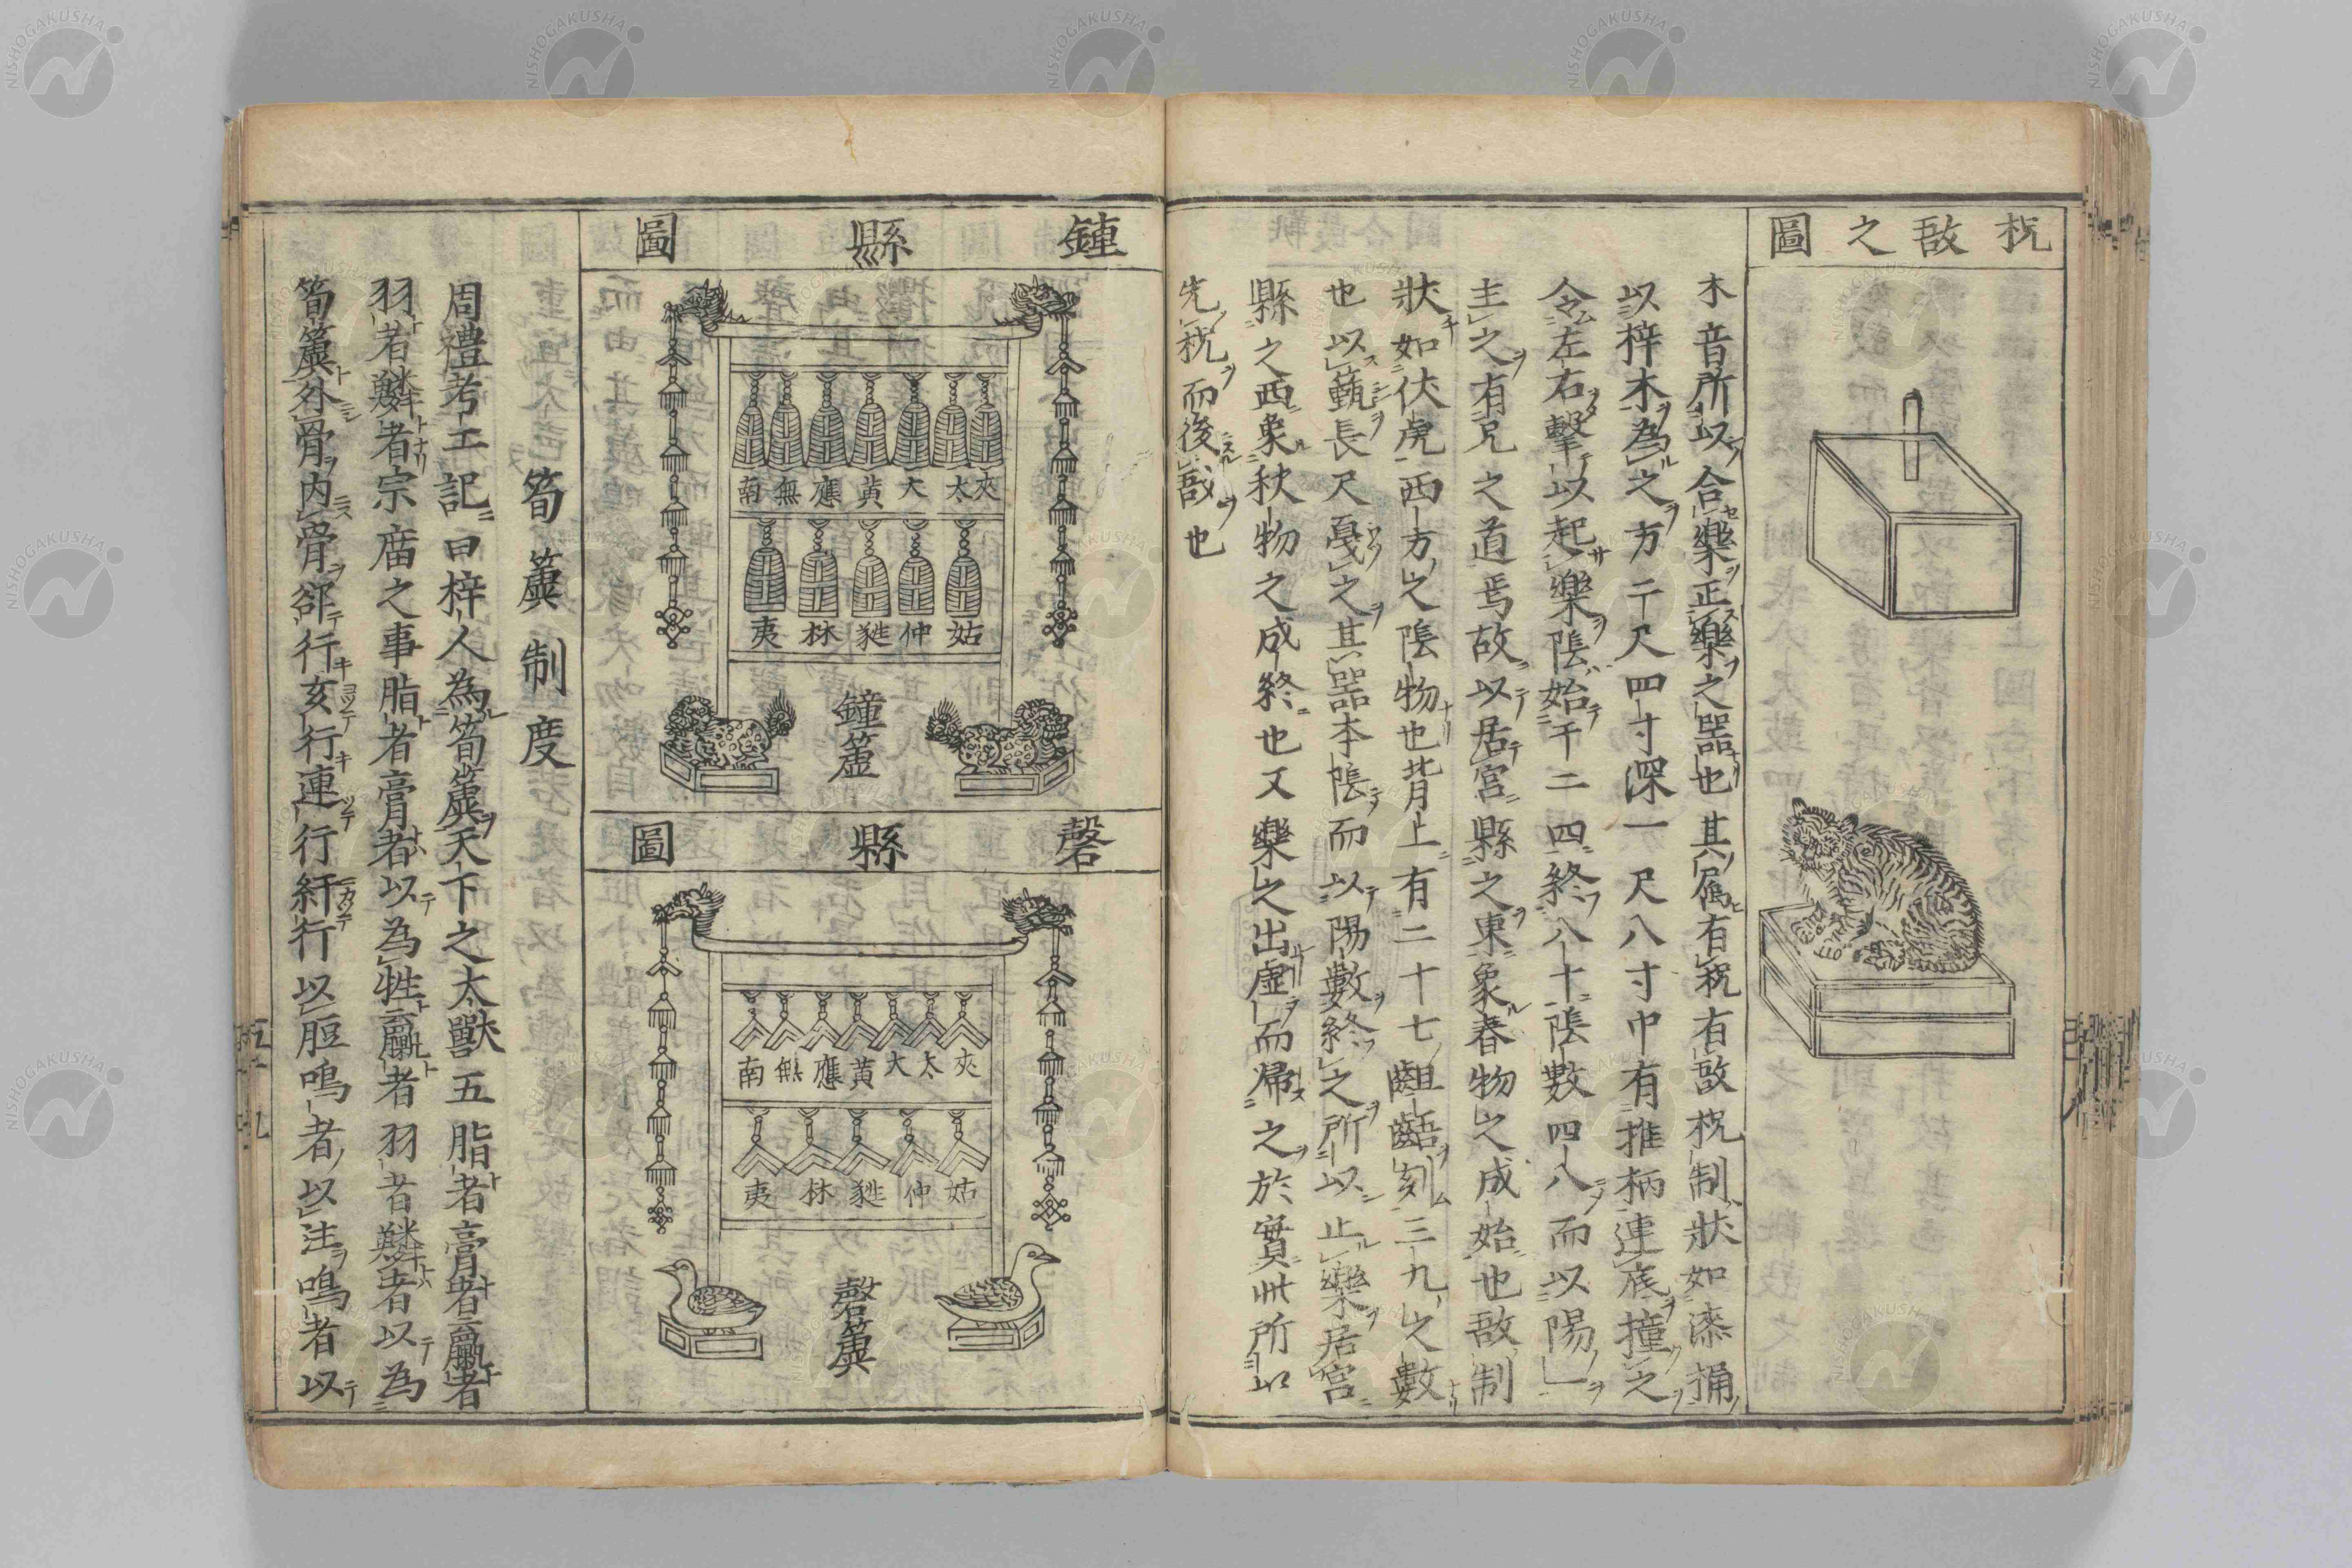 柷敔之圖
木音所以合樂正樂之器也其屬有柷有敔柷制狀如漆桶
以梓木為之方二尺四寸深一尺八寸中有推柄連底撞之
令左右擊以起樂陰始于二四終八十陰數四八而以陽一
主之有兄之道焉故以居宮縣之東象春物之成始也敔制
狀如伏虎西方之陰物也背上有二十七齟齬刻三九之數
也以籈長尺戞之其器本陰而以陽數終之所以止樂居宮
縣之西象秋物之成終也又樂之出虛而歸之於實此所以
先柷而後敔也
鐘縣圖
夾太大黃應無南
姑仲蕤林夷
鐘簴
磬縣圖
夾太大黃應無南
姑仲蕤林夷
磬簴
筍簴制度
周禮考工記曰梓人為筍簴天下之大獸五脂者膏者臝者
羽者鱗者宗庿之事脂者膏者以為牲臝者羽者鱗者以為
筍簴外骨內骨郤行亥行連行紆行以脰鳴者以注鳴者以
NISHOGAKUSHA